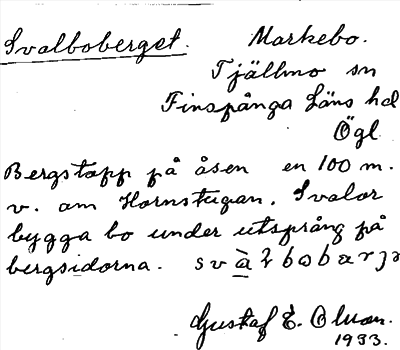 Svalboberget. Markebo.
Tjällmo sn
Finspånga Läns hd
Ögl.
Bergstopp på åsen en 100 m.
v. om Hornstugan. Svalor
bygga bo under utsprång på
bergsidorna.
Gustaf E.
1933.